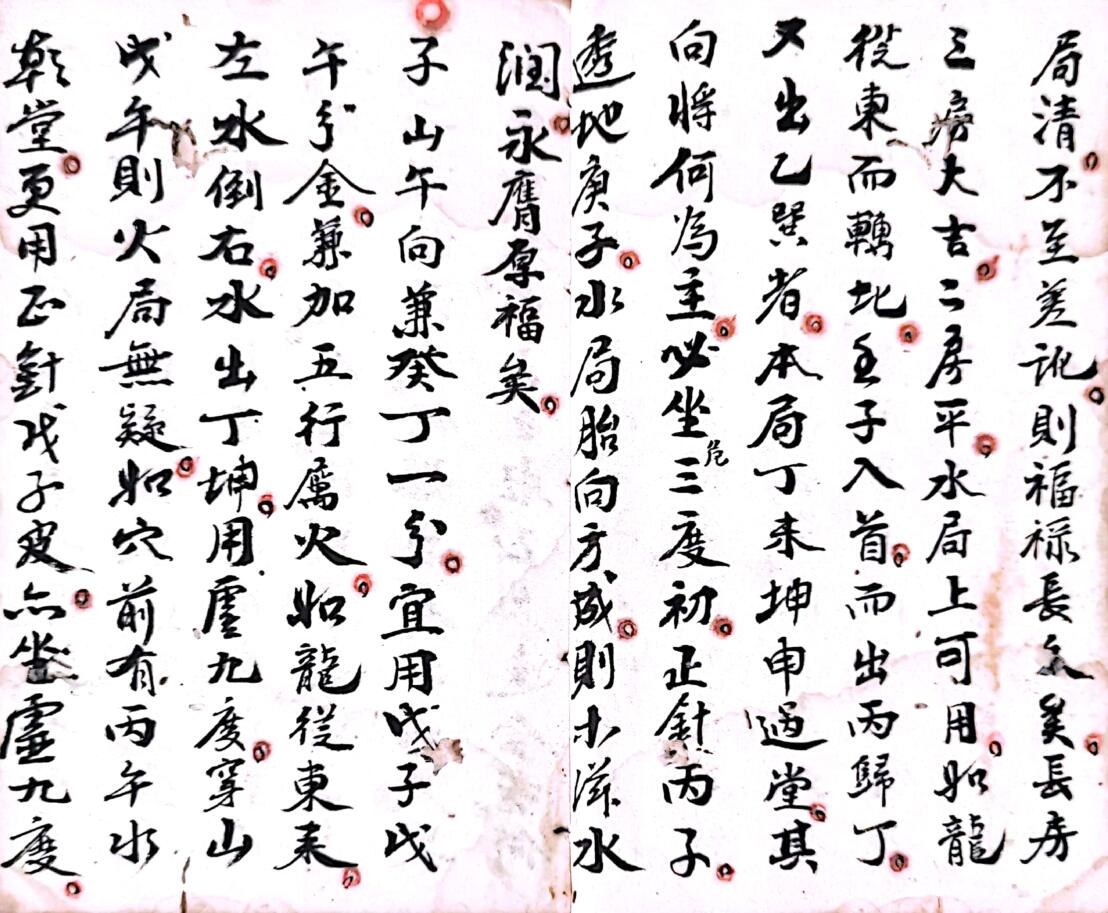 局清。不至差訛。則福祿長久矣。長房
三房大吉。二房平。水局上可用。如龍
從東而轉北。壬子入首。而出丙歸丁。
又出乙巽者。本局丁未坤申過堂。其
向將何為主。必坐危三度初。正針丙子。
透地庚子。水局胎向方成。則木滋水
潤永膺厚福矣。
子山午向兼癸丁一分。宜用戊子戊
午分金。兼加五行屬火。如龍從東來。
左水倒右。水出丁坤。用虛九度。穿山
戊午則火局無疑。如穴前有丙午水
朝堂。更用正針戊子度。亦坐虛九度。